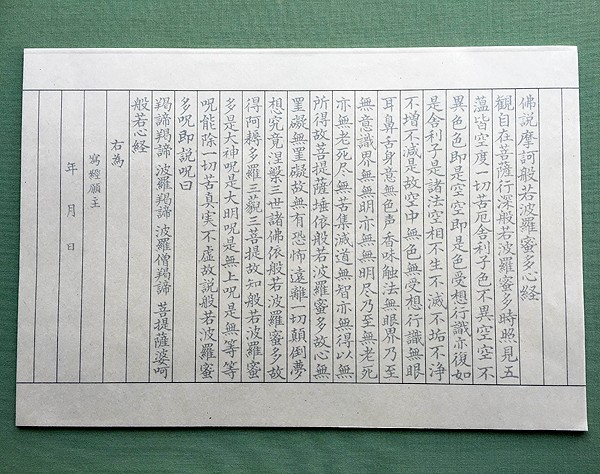 佛説摩訶般若波羅蜜多心経
観自在菩薩行深般若波羅蜜多時照見五
薀皆空度一切苦厄舎利子色不異空空不
異色色即是空空即是色受想行識亦復如
是舎利子是諸法空相不生不滅不垢不浄
不増不減是故空中無色無受想行識無眼
耳鼻舌身意無色声香味触法無眼界乃至
無意識界無無明亦無無明尽乃至無老死
亦無老死尽無苦集滅道無智亦無得以無
所得故菩提薩埵依般若波羅蜜多故心無
罣礙無罣礙故無有恐怖遠離一切顛倒夢
想究竟涅槃三世諸佛依般若波羅蜜多故
得阿耨多羅三藐三菩提故知般若波羅蜜
多是大神呪是大明呪是無上呪是無等等
呪能除一切苦真実不虚故説般若波羅蜜
多呪即説呪曰
羯諦羯諦 波羅羯諦 波羅僧羯諦 菩提薩婆呵
般若心経
右為
寫經願主
年 月 日